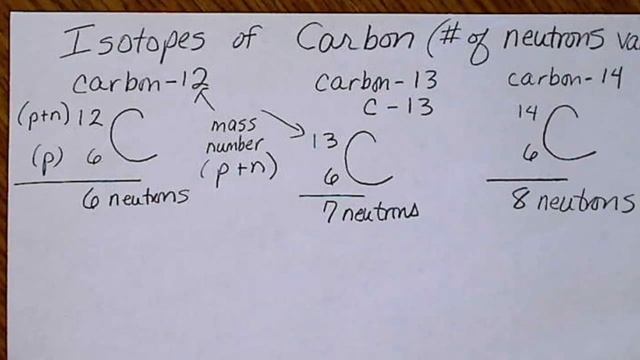 Isotopes of Carbon (# of neutrons va
carbon-12
carbon-13
carbon-14
C-13
(p+n) 12
C
(p) 6
6 neutrons
mass
number
(p+n)
13
C
6
7 neutrons
14
C
6
8 neutrons